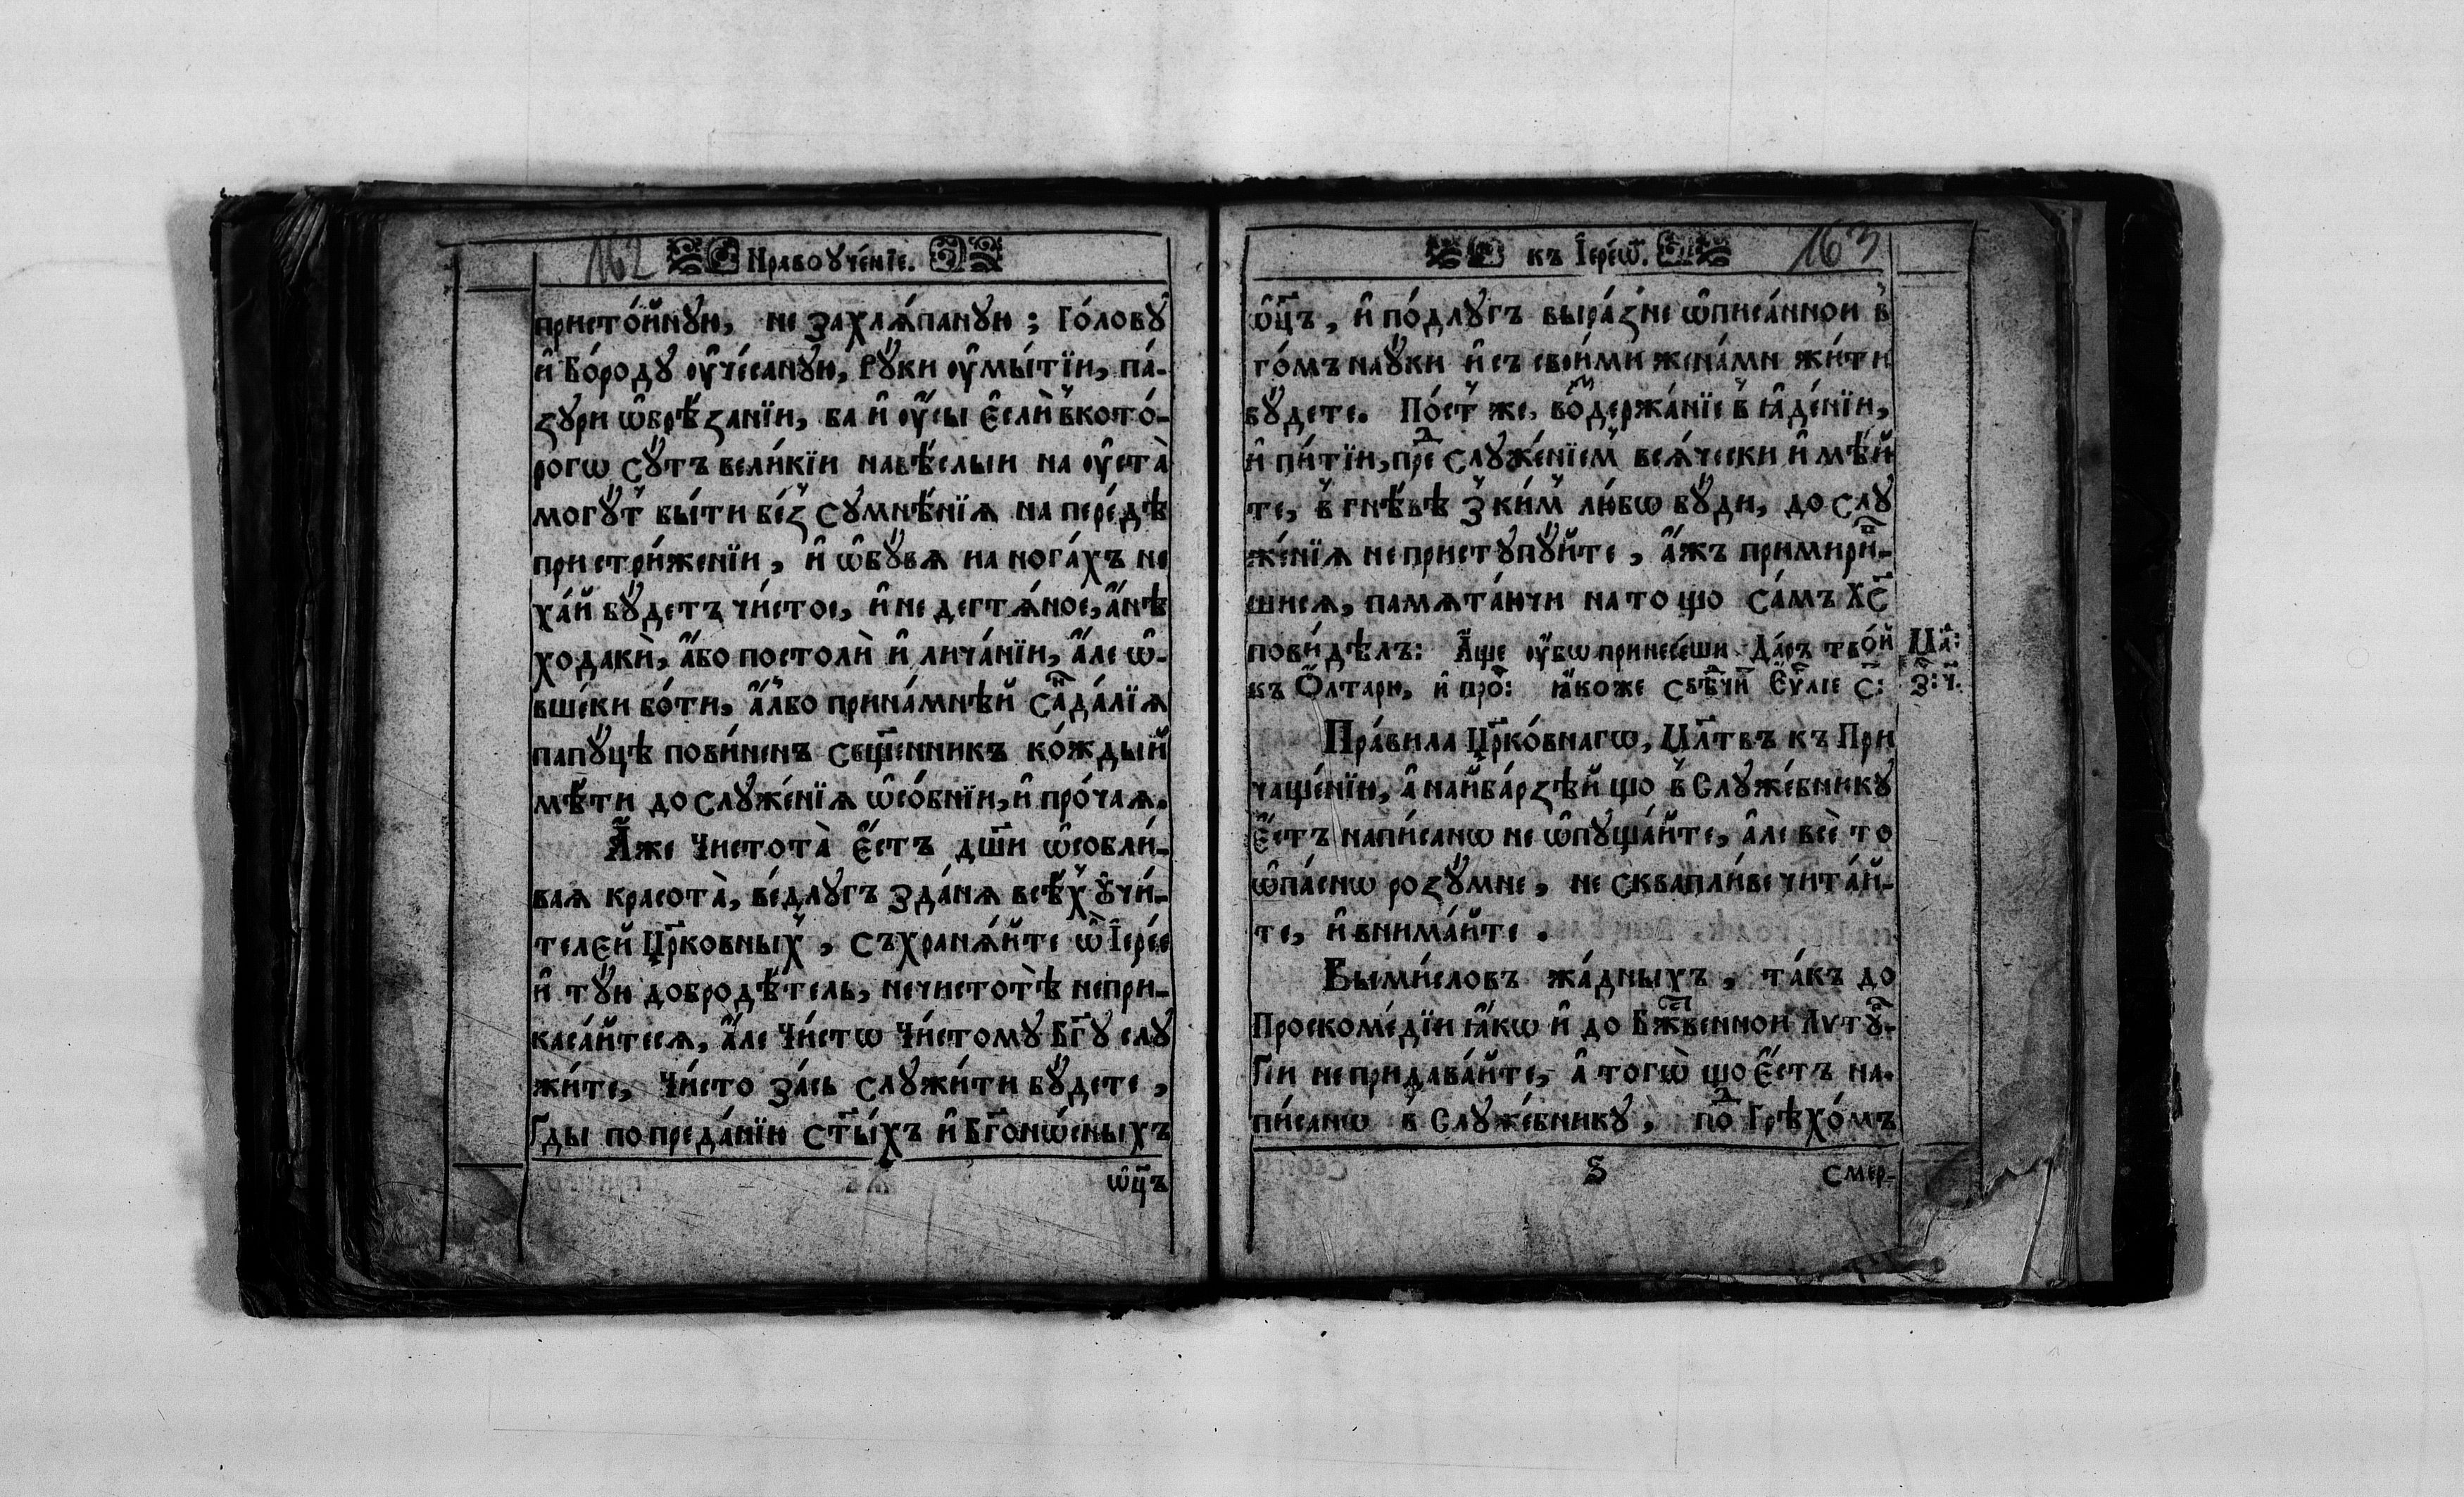 162 Нравоꙋче́нїе.
присто́йнꙋю, не захлѧ́панꙋю; Го́ловꙋ
и҆ Бо́родꙋ ᲂу҆че́санꙋю, Рꙋ́ки ᲂу҆мы́тїи, па́-
зꙋри ѡ҆брѣ́занїи, ба и҆ ᲂу҆́сы є҆слѝ в̾ кото́-
рогѡ сꙋ́тъ вели́кїи навѣ́слыи на ᲂу҆ста̀
могꙋ́т̾ бы́ти бе́з̾ сꙋмнѣ́нїѧ на пере́дѣ
при стри́женїи, и҆ ѡ҆бꙋ́вѧ на нога́хъ не
ха́й бꙋ́детъ чи́стое, и҆ не дегтѧ́ное, а҆́нѣ
ходакѝ, а҆́бо постолѝ и҆ лича́нїи, а҆́ле ѡ҆-
вше́ки бо́ти, а҆́лбо прина́мнѣй са̑да́лїѧ
папꙋ́цѣ пови́ненъ сщ҃енникъ ко́ждый
мѣ́ти до слꙋже́нїѧ ѡ҆со́бнїи, и҆ про́чаѧ.
А҆́же Чистота̀ є҆́стъ дш҃и ѡ҆собли́-
ваѧ красота̀, ве́длꙋгъ зда́нѧ всѣ́х̾ ᲂу҆чи́-
телєй Цр҃ковных̾, съхранѧ́йте ѽ І҆ере́е
и҆ тꙋ́ю добродѣ́тель, нечистотѣ̀ непри-
каса́йтесѧ, а҆́ле Чи́стѡ Чи́стомꙋ Бг҃ꙋ слꙋ
жи́те, Чи́сто за́сь слꙋжи́ти бꙋ́дете,
Гды по преда́нїю ст҃ы́хъ и҆ Бг҃онѡ́сныхъ
ѡ҆ц҃ъ
къ І҆ере́ѡ҃. 163
ѡ҆ц҃ъ, и҆ по́длꙋгъ выра́зне ѡ҆писа́нной в̾
го́мъ наꙋ́ки и҆ съ свои́ми жена́ми жи́ти
бꙋ́дете. По́ст̾ же, воз̾держа́нїе в̾ ꙗ҆де́нїи,
и҆ пи́тїи, преⷣ слꙋже́нїем̾ всѧ́чески и҆мѣ́й
те, в̾ гнѣ́вѣ з̾ ки́м̾ лю́бѡ бꙋ́ди, до слꙋ
же́нїѧ не пристꙋпꙋ́йте, а҆́жъ примири́в̾-
шисѧ, памѧта́ючи на то що са́мъ Хс҃
пови́дѣлъ: А҆́ще ᲂу҆́бѡ принесе́ши Да́ръ тво́й
къ О҆лтарю, и҆ про́ⷱ: ꙗ҆́коже свѣⷣчи́т̾ Є҆ѵⷢ҇лїе С҃:
Ма҃: З҃: ч҃.
Пра́вила Цр҃ко́внагѡ, Мл҃твъ къ При
чаще́нїю, а҆ на́йба́рзѣй що в̾ Слꙋже́бникꙋ
є҆́стъ напи́санѡ не ѡ҆пꙋща́йте, а҆́ле всѐ то
ѡ҆па́снѡ розꙋ́мне, не скваплі́ве чита́й-
те, и҆ внима́йте.
Вымы́словъ жа́дныхъ, та́къ до
Проскоме́дїи ꙗ҆́кѡ и҆ до Бж҃твенной Лѵтꙋ́р-
Гїи не придава́йте, а҆ тогѡ̀ що є҆́стъ на-
пи́санѡ в̾ Слꙋже́бникꙋ, поⷣ Грѣхо́мъ
Ѕ смер-